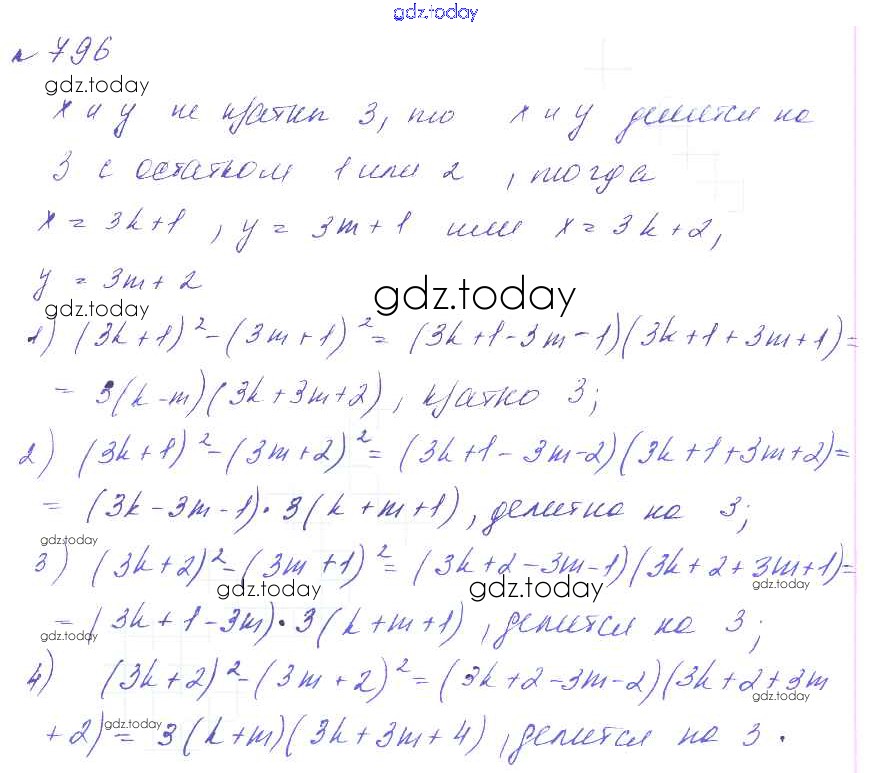 gdz.today
№ 796
gdz.today
x и y не кратны 3, то x и y делится на
3 с остатком 1 или 2, тогда
x = 3k+1, y = 3m+1 или x = 3k+2,
y = 3m+2
gdz.today
gdz.today
1) (3k+1)²-(3m+1)² = (3k+1-3m-1)(3k+1+3m+1)=
= 3(k-m)(3k+3m+2), кратно 3;
2) (3k+1)²-(3m+2)² = (3k+1-3m-2)(3k+1+3m+2)=
= (3k-3m-1)·3(k+m+1), делитна на 3;
gdz.today
3) (3k+2)²-(3m+1)² = (3k+2-3m-1)(3k+2+3m+1)=
gdz.today gdz.today gdz.today
= (3k+1-3m)·3(k+m+1), делится на 3;
gdz.today
4) (3k+2)²-(3m+2)² = (3k+2-3m-2)(3k+2+3m
gdz.today gdz.today
+2) = 3(k+m)(3k+3m+4), делится на 3.